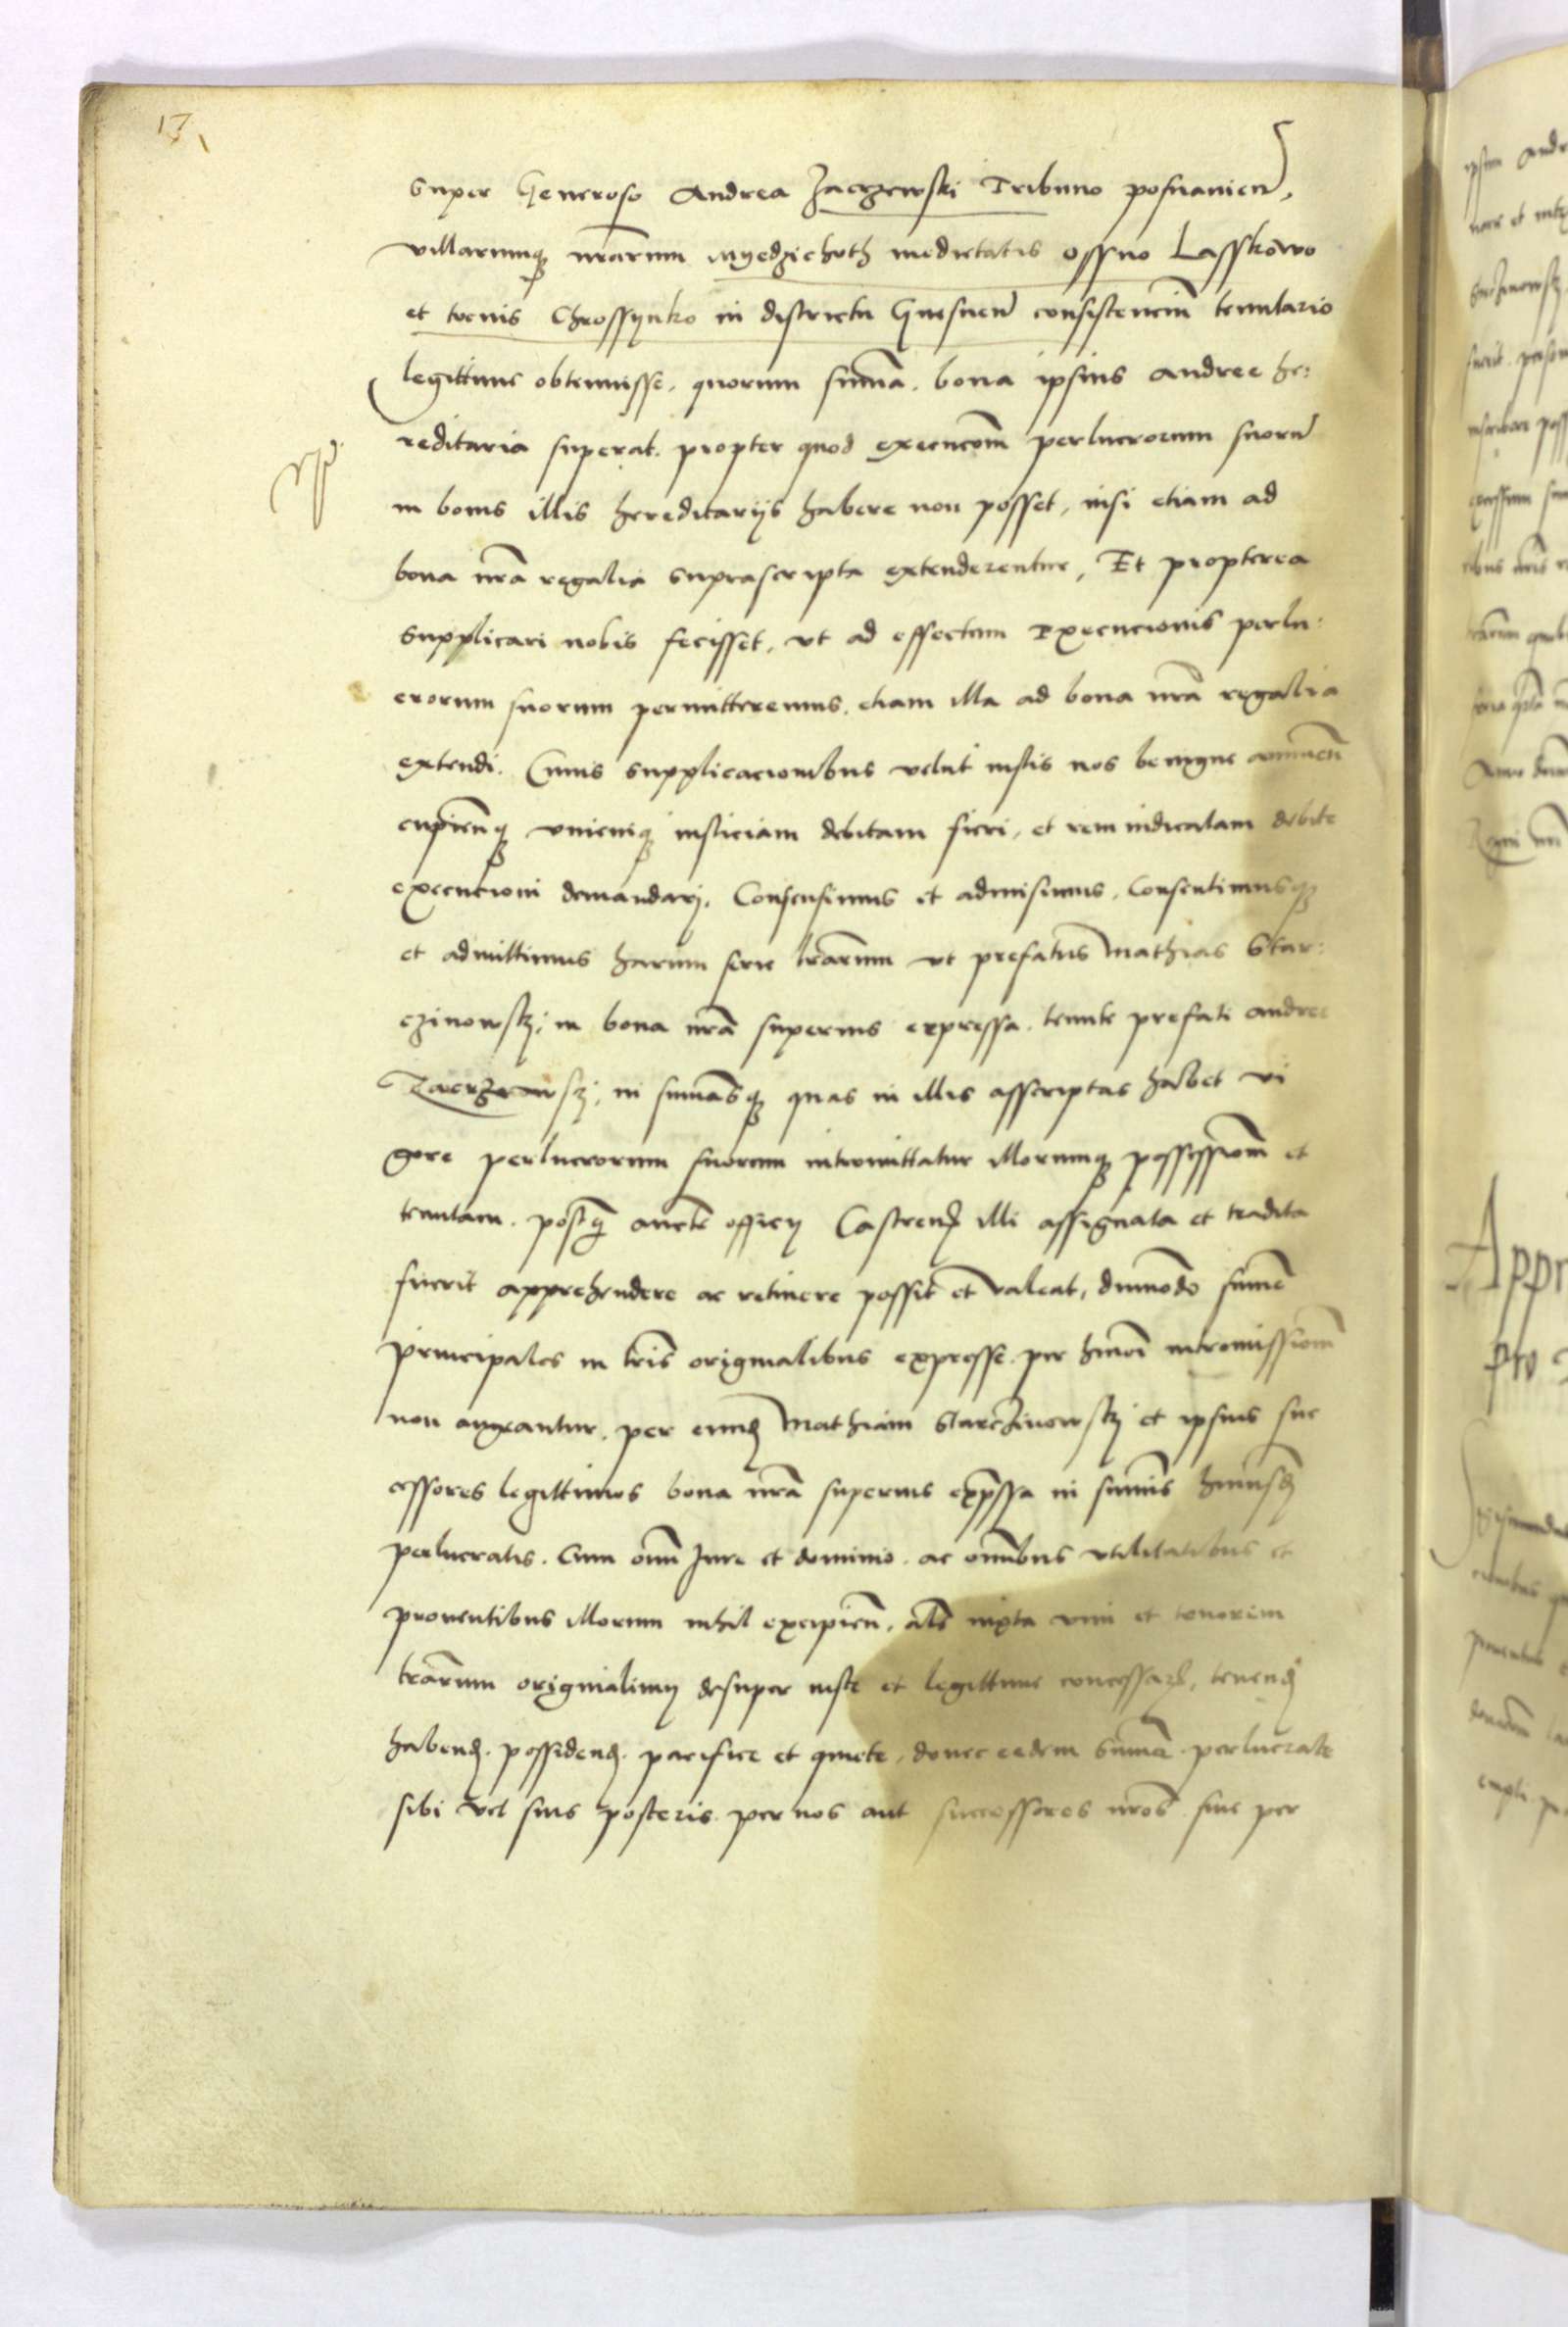 17
super Generoso Andrea Jaczewski Tribuno posnanien̄,
villarumq; nr̄arum myedzichoth medietatis Ossno Lasskowo
et tocius Chrossynko in districtu Gnesnen̄ consistenciū tenutario
legittime obtenuisse. quorum sum̄a. bona ipsius Andree he:
reditaria superat. propter quod execucōm perlucrorum suorū
in bonis illis hereditarijs habere non posset, nisi etiam ad
bona nr̄a regalia suprascripta extenderentur, Et propterea
supplicari nobis fecisset, vt ad effectum Execucionis perlu:
crorum suorum permitteremus. etiam illa ad bona nr̄a regalia
extendi. Cuius supplicacionibus velut iustis nos benigne annuen̄
cupien̄q; vnicuiq; iusticiam debitam fieri, et rem iudicatam debite
execucioni demandarj. Consensimus et admisimus. Consentimusq;
et admittimus harum serie lr̄arum vt prefatus Mathias Star:
czinowskj, in bona nr̄a superius expressa. tenute prefati andree
in sum̄asq; quas in illis asscriptas habet vi
gore perlucrorum suorum intromittatur illorumq; possessionem et
tenutam. postq̄ auctē officij Castren̄ illi assignata et tradita
fuerit apprehendere ac retinere possit et valeat, dummodo sum̄e
principales in lr̄is originalibus expresse. per hm̄oi intromissionem
non augeantur. per eund̄ Mathiam Starczinowskj et ipsius suc
cessores legittimos bona nr̄a superius exp̄ssa in sum̄is huiusd̄
perlucratis. Cum om̄i Jure et dominio. ac om̄ibus vtilitatibus et
prouentibus illorum nihil excipien̄. al̄s iuxta vim et tenorem
lr̄arum originalium desuper iuste et legittime concessar̄, tenend̄
habend̄. possidend̄. pacifice et quiete, donec eedem sum̄e perlucrate
sibi vel suis posteris. per nos aut successores nr̄os siue per